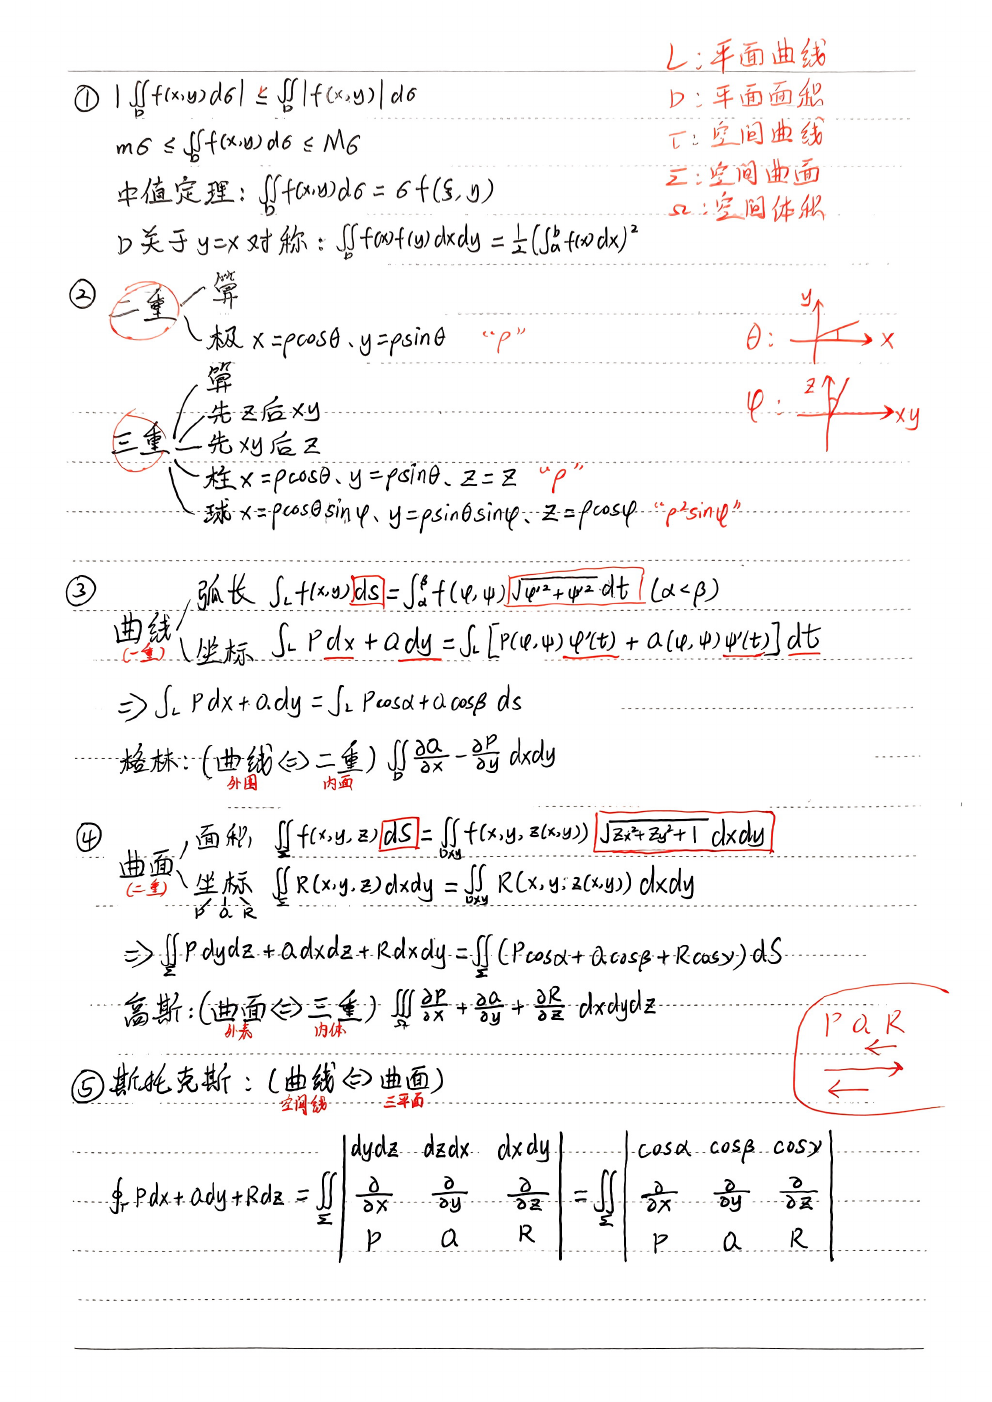 L：平面曲线
D：平面面积
τ：空间曲线
Σ：空间曲面
Ω：空间体积
① |∬_D f(x,y)dσ| ≤ ∬_D |f(x,y)| dσ
mσ ≤ ∬_D f(x,y)dσ ≤ Mσ
中值定理：∬_D f(x,y)dσ = σf(ξ,y)
D关于y=x对称：∬_D f(x)f(y)dxdy = 1/2(∫_a^b f(x)dx)²
② 二重
算
极 x=ρcosθ、y=ρsinθ “ρ”
θ： y x
φ： z xy
三重
算
先z后xy
先xy后z
柱 x=ρcosθ、y=ρsinθ、z=z “ρ”
球 x=ρcosθsinφ、y=ρsinθsinφ、z=ρcosφ “ρ²sinφ”
③ 曲线 (一重)
弧长 ∫_L f(x,y)ds = ∫_α^β f(φ,ψ)√(φ'²+ψ'²) dt (α<β)
坐标 ∫_L Pdx+Qdy = ∫_L [P(φ,ψ)φ'(t) + Q(φ,ψ)ψ'(t)]dt
⇒ ∫_L Pdx+Qdy = ∫_L Pcosα+Qcosβ ds
格林：(曲线⇔二重) ∬_D ∂Q/∂x - ∂P/∂y dxdy
外围 内面
④ 曲面 (二重)
面积 ∬_Σ f(x,y,z)dS = ∬_Dxy f(x,y,z(x,y)) √(zx²+zy²+1) dxdy
坐标 ∬_Σ R(x,y,z)dxdy = ∬_Dxy R(x,y,z(x,y))dxdy
P Q R
⇒ ∬_Σ Pdydz+Qdxdz+Rdxdy = ∬_Σ (Pcosα+Qcosβ+Rcosγ)dS
高斯：(曲面⇔三重) ∭_Ω ∂P/∂x + ∂Q/∂y + ∂R/∂z dxdydz
外表 内体
P Q R
⑤ 斯托克斯：(曲线⇔曲面)
空间线 三平面
∮_Γ Pdx+Qdy+Rdz = ∬_Σ |dydz dzdx dxdy; ∂/∂x ∂/∂y ∂/∂z; P Q R| = ∬_Σ |cosα cosβ cosγ; ∂/∂x ∂/∂y ∂/∂z; P Q R|